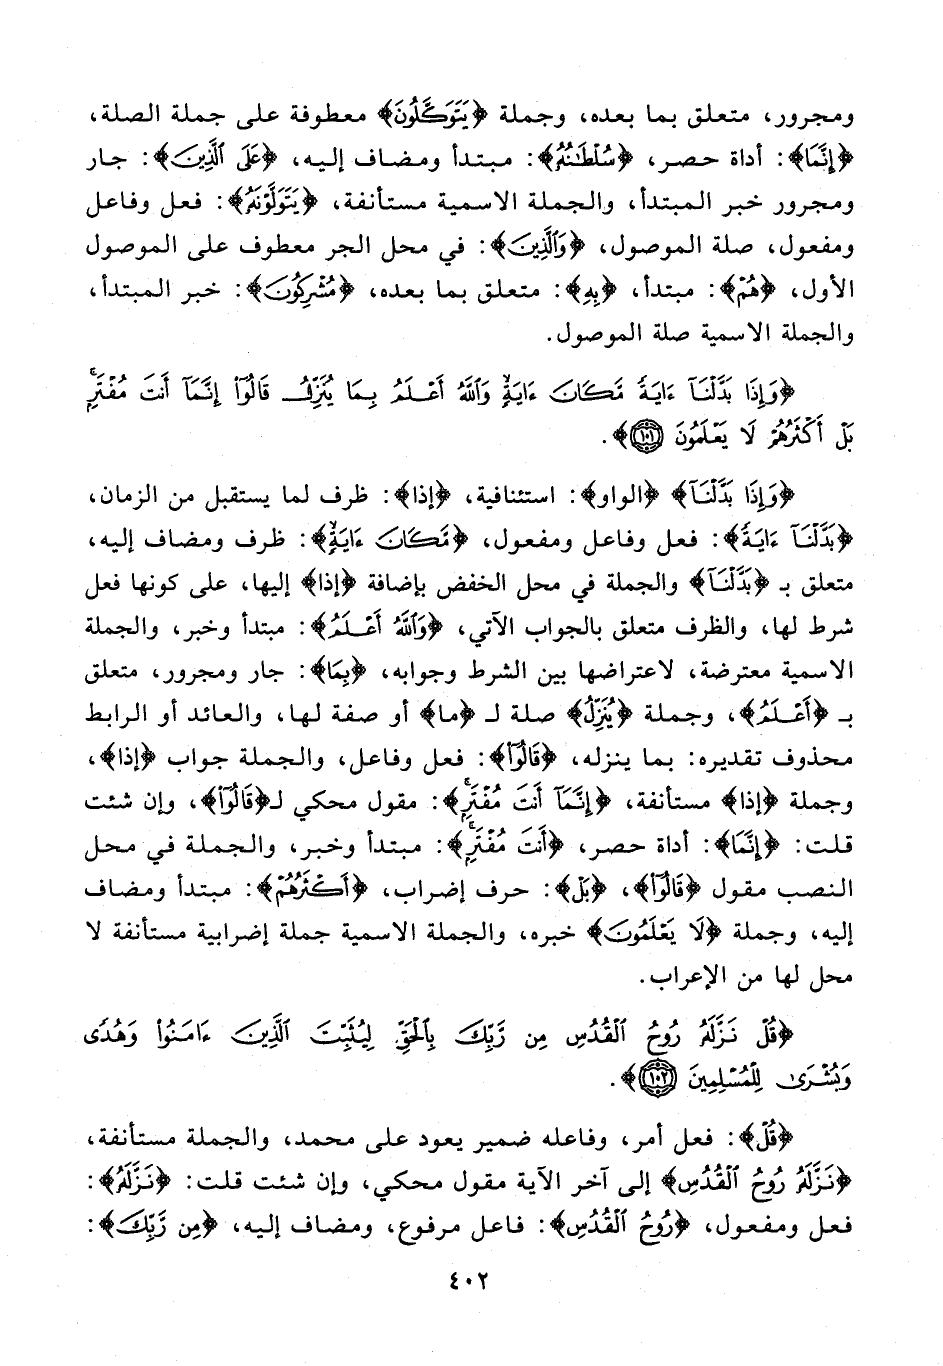 ومجرور، متعلق بما بعده، وجملة ﴿يَتَوَكَّلُونَ﴾ معطوفة على جملة الصلة،
﴿إِنَّمَا﴾: أداة حصر، ﴿سُلْطَٰنُهُۥ﴾: مبتدأ ومضاف إليه، ﴿عَلَى ٱلَّذِينَ﴾: جار
ومجرور خبر المبتدأ، والجملة الاسمية مستأنفة، ﴿يَتَوَلَّوْنَهُۥ﴾: فعل وفاعل
ومفعول، صلة الموصول، ﴿وَٱلَّذِينَ﴾: في محل الجر معطوف على الموصول
الأول، ﴿هُم﴾: مبتدأ، ﴿بِهِۦ﴾: متعلق بما بعده، ﴿مُشْرِكُونَ﴾: خبر المبتدأ،
والجملة الاسمية صلة الموصول.
﴿وَإِذَا بَدَّلْنَآ ءَايَةً مَّكَانَ ءَايَةٍۙ وَٱللَّهُ أَعْلَمُ بِمَا يُنَزِّلُ قَالُوٓا۟ إِنَّمَآ أَنتَ مُفْتَرٍۭۚ
بَلْ أَكْثَرُهُمْ لَا يَعْلَمُونَ ١٠١﴾.
﴿وَإِذَا بَدَّلْنَآ﴾ ﴿الواو﴾: استئنافية، ﴿إذا﴾: ظرف لما يستقبل من الزمان،
﴿بَدَّلْنَآ ءَايَةً﴾: فعل وفاعل ومفعول، ﴿مَّكَانَ ءَايَةٍۙ﴾: ظرف ومضاف إليه،
متعلق بـ ﴿بَدَّلْنَآ﴾ والجملة في محل الخفض بإضافة ﴿إذا﴾ إليها، على كونها فعل
شرط لها، والظرف متعلق بالجواب الآتي، ﴿وَٱللَّهُ أَعْلَمُ﴾: مبتدأ وخبر، والجملة
الاسمية معترضة، لاعتراضها بين الشرط وجوابه، ﴿بِمَا﴾: جار ومجرور، متعلق
بـ ﴿أَعْلَمُ﴾، وجملة ﴿يُنَزِّلُ﴾ صلة لـ ﴿ما﴾ أو صفة لها، والعائد أو الرابط
محذوف تقديره: بما ينزله، ﴿قَالُوٓا۟﴾: فعل وفاعل، والجملة جواب ﴿إذا﴾،
وجملة ﴿إذا﴾ مستأنفة، ﴿إِنَّمَآ أَنتَ مُفْتَرٍۭۚ﴾: مقول محكي لـ﴿قَالُوٓا۟﴾، وإن شئت
قلت: ﴿إِنَّمَا﴾: أداة حصر، ﴿أَنتَ مُفْتَرٍۭۚ﴾: مبتدأ وخبر، والجملة في محل
النصب مقول ﴿قَالُوٓا۟﴾، ﴿بَلْ﴾: حرف إضراب، ﴿أَكْثَرُهُمْ﴾: مبتدأ ومضاف
إليه، وجملة ﴿لَا يَعْلَمُونَ﴾ خبره، والجملة الاسمية جملة إضرابية مستأنفة لا
محل لها من الإعراب.
﴿قُلْ نَزَّلَهُۥ رُوحُ ٱلْقُدُسِ مِن رَّبِّكَ بِٱلْحَقِّ لِيُثَبِّتَ ٱلَّذِينَ ءَامَنُوا۟ وَهُدًى
وَبُشْرَىٰ لِلْمُسْلِمِينَ ١٠٢﴾.
﴿قُلْ﴾: فعل أمر، وفاعله ضمير يعود على محمد، والجملة مستأنفة،
﴿نَزَّلَهُۥ رُوحُ ٱلْقُدُسِ﴾ إلى آخر الآية مقول محكي، وإن شئت قلت: ﴿نَزَّلَهُۥ﴾:
فعل ومفعول، ﴿رُوحُ ٱلْقُدُسِ﴾: فاعل مرفوع، ومضاف إليه، ﴿مِن رَّبِّكَ﴾:
٤٠٢